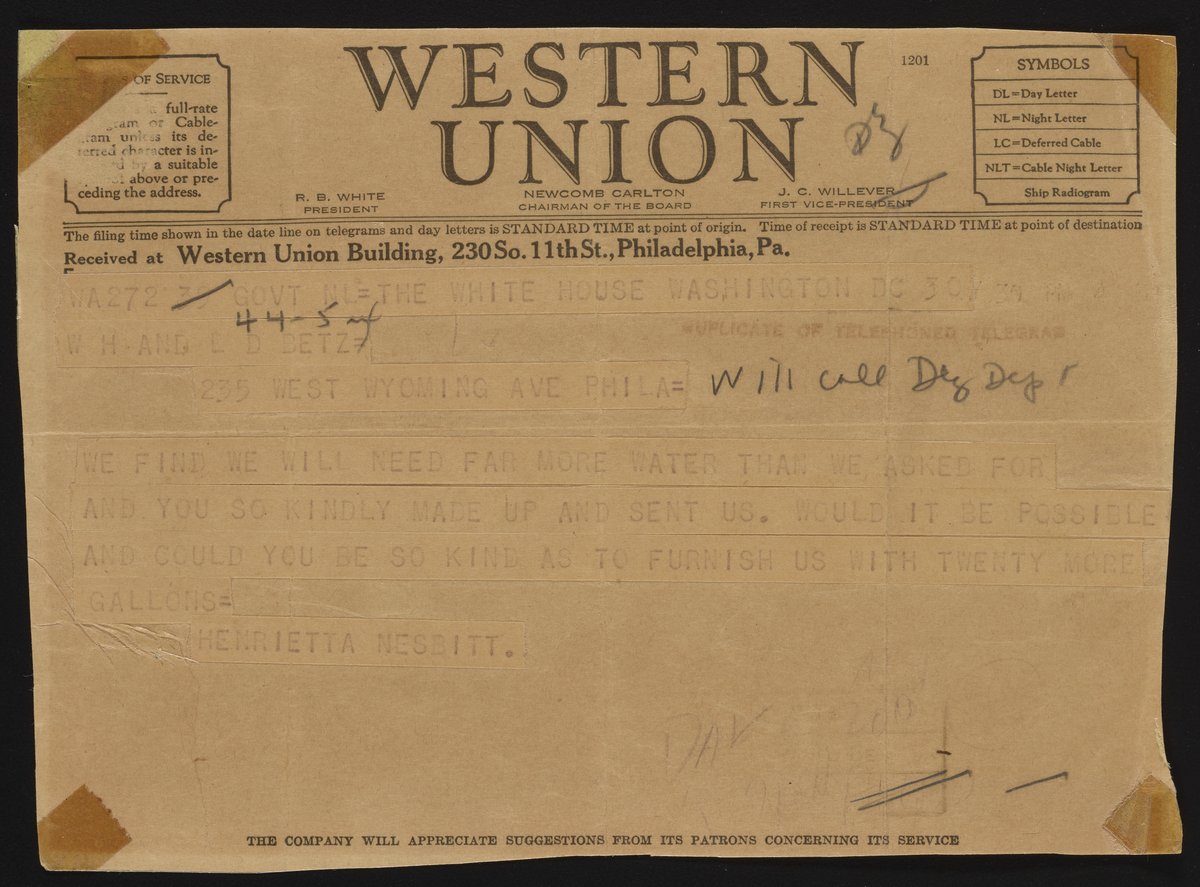 OF SERVICE
full-rate
or Cable-
unless its de-
character is in-
by a suitable
above or pre-
ceding the address.
WESTERN
UNION
1201
R. B. WHITE
PRESIDENT
NEWCOMB CARLTON
CHAIRMAN OF THE BOARD
J. C. WILLEVER
FIRST VICE-PRESIDENT
SYMBOLS
DL=Day Letter
NL=Night Letter
LC=Deferred Cable
NLT=Cable Night Letter
Ship Radiogram
The filing time shown in the date line on telegrams and day letters is STANDARD TIME at point of origin. Time of receipt is STANDARD TIME at point of destination
Received at Western Union Building, 230 So. 11th St., Philadelphia, Pa.
WA272 GOVT NL=THE WHITE HOUSE WASHINGTON DC 30
44-5
DUPLICATE OF TELEPHONED TELEGRAM
W H AND L D BETZ=
235 WEST WYOMING AVE PHILA=
Will call
WE FIND WE WILL NEED FAR MORE WATER THAN WE ASKED FOR
AND YOU SO KINDLY MADE UP AND SENT US. WOULD IT BE POSSIBLE
AND COULD YOU BE SO KIND AS TO FURNISH US WITH TWENTY MORE
GALLONS=
HENRIETTA NESBITT.
THE COMPANY WILL APPRECIATE SUGGESTIONS FROM ITS PATRONS CONCERNING ITS SERVICE